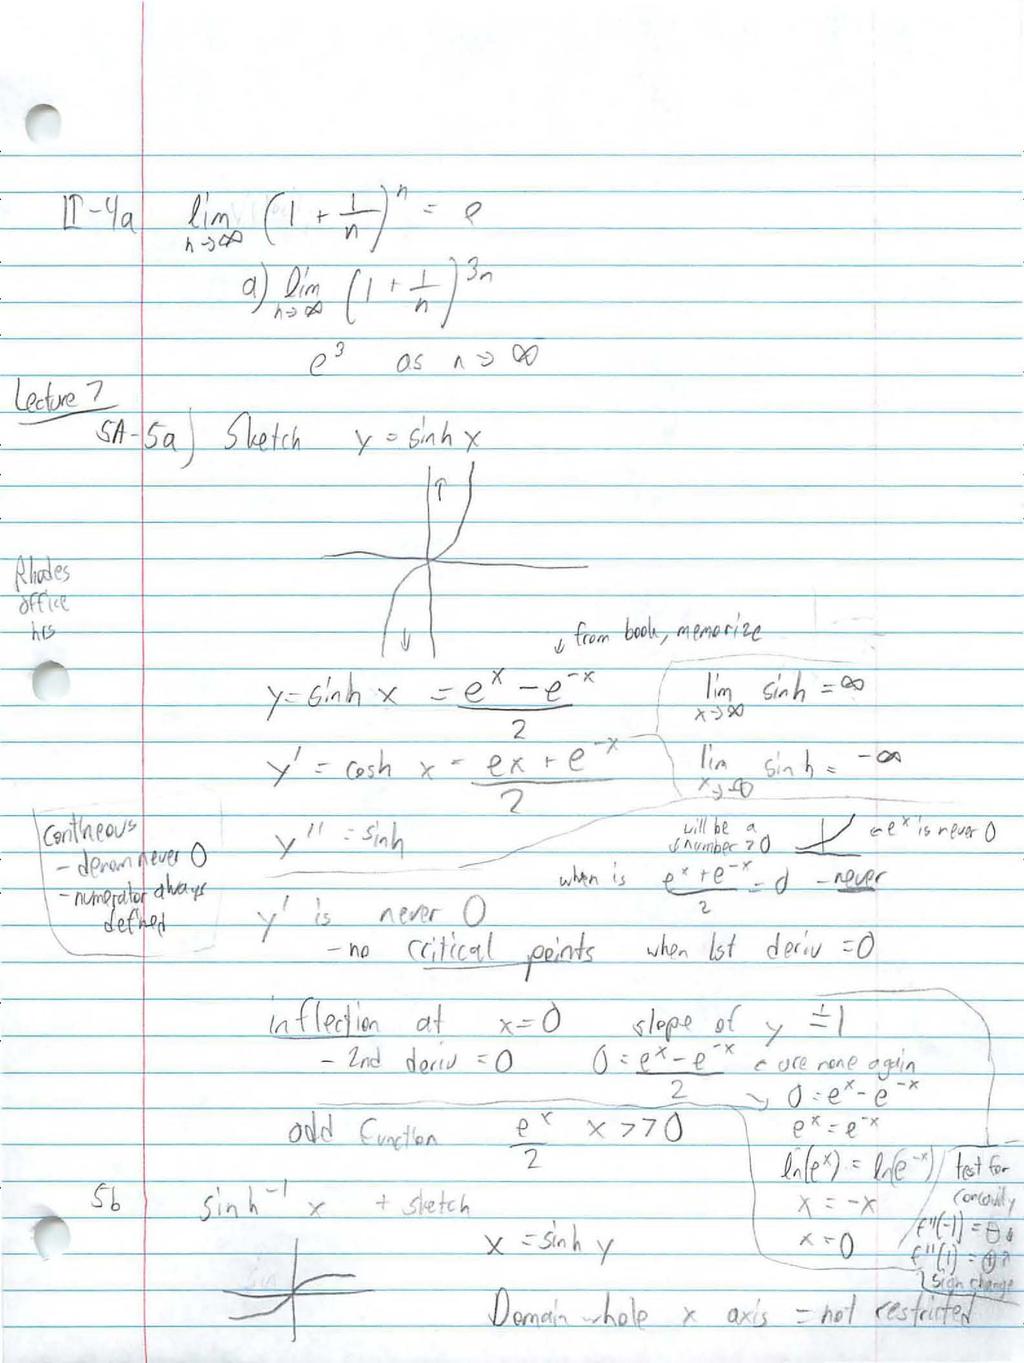 II-4a lim n→∞ (1 + 1/n)^n = e
a) lim n→∞ (1 + 1/n)^3n
e^3 as n → ∞
Lecture 7
5A-5a) Sketch y = sinh x
Rhodes
office
hrs
↓ from book, memorize
y = sinh x = (e^x - e^-x)/2
lim x→∞ sinh = ∞
y' = cosh x = (ex + e^-x)/2
lim x→-∞ sinh = -∞
contineous
- denom never 0
- numerator always
defined
y'' = sinh
will be a
↓ number > 0
← e^x is never 0
when is (e^x + e^-x)/2 = 0 - never
y' is never 0
- no critical points when 1st deriv = 0
inflection at x = 0 slope of y = 1
- 2nd deriv = 0 0 = (e^x - e^-x)/2 ← are none again
↘ 0 = e^x - e^-x
e^x = e^-x
ln(e^x) = ln(e^-x)
x = -x
x = 0
test for
concavity
f''(-1) = ⊖
f''(1) = ⊕
sign change
odd function e^x/2 x >> 0
5b sinh^-1 x + sketch
x = sinh y
Domain whole x axis = not restricted